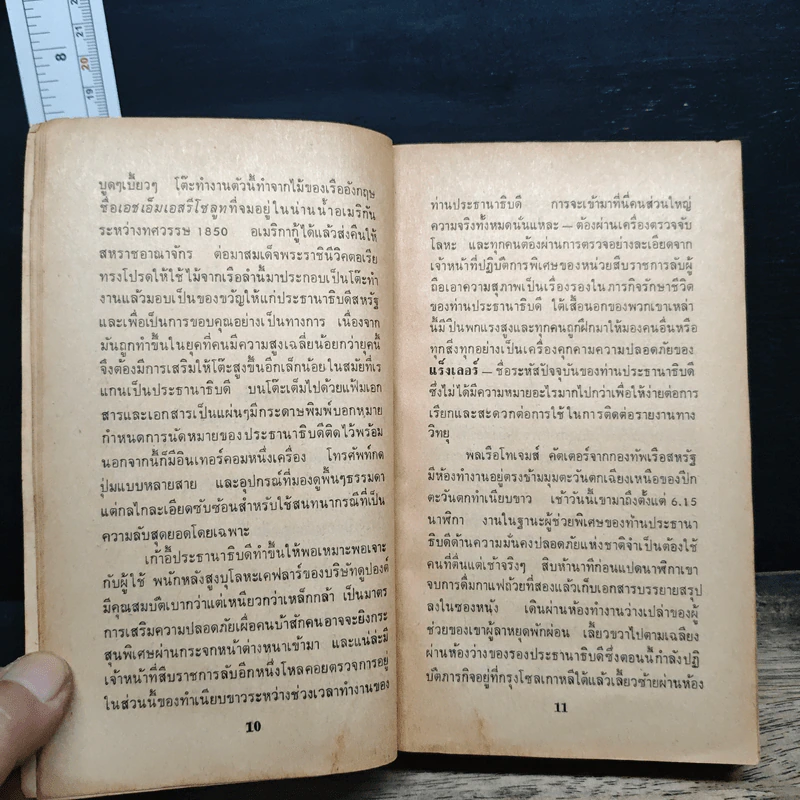 8
19
20
21
บูดๆเบี้ยวๆ โต๊ะทำงานตัวนี้ทำจากไม้ของเรืออังกฤษ
ชื่อเอชเอ็มเอสรีโซลูทที่จมอยู่ในน่านน้ำอเมริกัน
ระหว่างทศวรรษ 1850 อเมริกากู้ได้แล้วส่งคืนให้
สหราชอาณาจักร ต่อมาสมเด็จพระราชินีวิคตอเรีย
ทรงโปรดให้ใช้ไม้จากเรือลำนี้มาประกอบเป็นโต๊ะทำ
งานแล้วมอบเป็นของขวัญให้แก่ประธานาธิบดีสหรัฐ
และเพื่อเป็นการขอบคุณอย่างเป็นทางการ เนื่องจาก
มันถูกทำขึ้นในยุคที่คนมีความสูงเฉลี่ยน้อยกว่ายุคนี้
จึงต้องมีการเสริมให้โต๊ะสูงขึ้นอีกเล็กน้อยในสมัยที่เร
แกนเป็นประธานาธิบดี บนโต๊ะเต็มไปด้วยแฟ้มเอก
สารและเอกสารเป็นแผ่นๆมีกระดาษพิมพ์บอกหมาย
กำหนดการนัดหมายของประธานาธิบดีติดไว้พร้อม
นอกจากนี้ก็มีอินเทอร์คอมหนึ่งเครื่อง โทรศัพท์กด
ปุ่มแบบหลายสาย และอุปกรณ์ที่มองดูพื้นๆธรรมดา
แต่กลไกละเอียดซับซ้อนสำหรับใช้สนทนากรณีที่เป็น
ความลับสุดยอดโดยเฉพาะ
เก้าอี้ประธานาธิบดีทำขึ้นให้พอเหมาะพอเจาะ
กับผู้ใช้ พนักหลังสูงบุโลหะเคฟลาร์ของบริษัทดูปองต์
มีคุณสมบัติเบากว่าแต่เหนียวกว่าเหล็กกล้า เป็นมาตร
การเสริมความปลอดภัยเผื่อคนบ้าสักคนอาจจะยิงกระ
สุนพิเศษผ่านกระจกหน้าต่างหนาเข้ามา และแน่ล่ะมี
เจ้าหน้าที่สืบราชการลับอีกหนึ่งโหลคอยตรวจการอยู่
ในส่วนนี้ของทำเนียบขาวระหว่างช่วงเวลาทำงานของ
10
ท่านประธานาธิบดี การจะเข้ามาที่นี่คนส่วนใหญ่
ความจริงทั้งหมดนั่นแหละ — ต้องผ่านเครื่องตรวจจับ
โลหะ และทุกคนต้องผ่านการตรวจอย่างละเอียดจาก
เจ้าหน้าที่ปฏิบัติการพิเศษของหน่วยสืบราชการลับผู้
ถือเอาความสุภาพเป็นเรื่องรองในภาระกิจรักษาชีวิต
ของท่านประธานาธิบดี ใต้เสื้อนอกของพวกเขาเหล่า
นี้มีปืนพกแรงสูงและทุกคนถูกฝึกมาให้มองคนอื่นหรือ
ทุกสิ่งทุกอย่างเป็นเครื่องคุกคามความปลอดภัยของ
แร็งเลอร์ — ชื่อรหัสปัจจุบันของท่านประธานาธิบดี
ซึ่งไม่ได้มีความหมายอะไรมากไปกว่าเพื่อให้ง่ายต่อการ
เรียกและสะดวกต่อการใช้ในการติดต่อรายงานทาง
วิทยุ
พลเรือโทเจมส์ คัตเตอร์จากกองทัพเรือสหรัฐ
มีห้องทำงานอยู่ตรงข้ามมุมตะวันตกเฉียงเหนือของปีก
ตะวันตกทำเนียบขาว เช้าวันนี้เขามาถึงตั้งแต่ 6.15
นาฬิกา งานในฐานะผู้ช่วยพิเศษของท่านประธานา
ธิบดีด้านความมั่นคงปลอดภัยแห่งชาติจำเป็นต้องใช้
คนที่ตื่นแต่เช้าจริงๆ สิบห้านาทีก่อนแปดนาฬิกาเขา
จบการดื่มกาแฟถ้วยที่สองแล้วเก็บเอกสารบรรยายสรุป
ลงในซองหนัง เดินผ่านห้องทำงานว่างเปล่าของผู้
ช่วยของเขาผู้ลาหยุดพักผ่อน เลี้ยวขวาไปตามเฉลียง
ผ่านห้องว่างของรองประธานาธิบดีซึ่งตอนนี้กำลังปฏิ
บัติภารกิจอยู่ที่กรุงโซลเกาหลีใต้แล้วเลี้ยวซ้ายผ่านห้อง
11